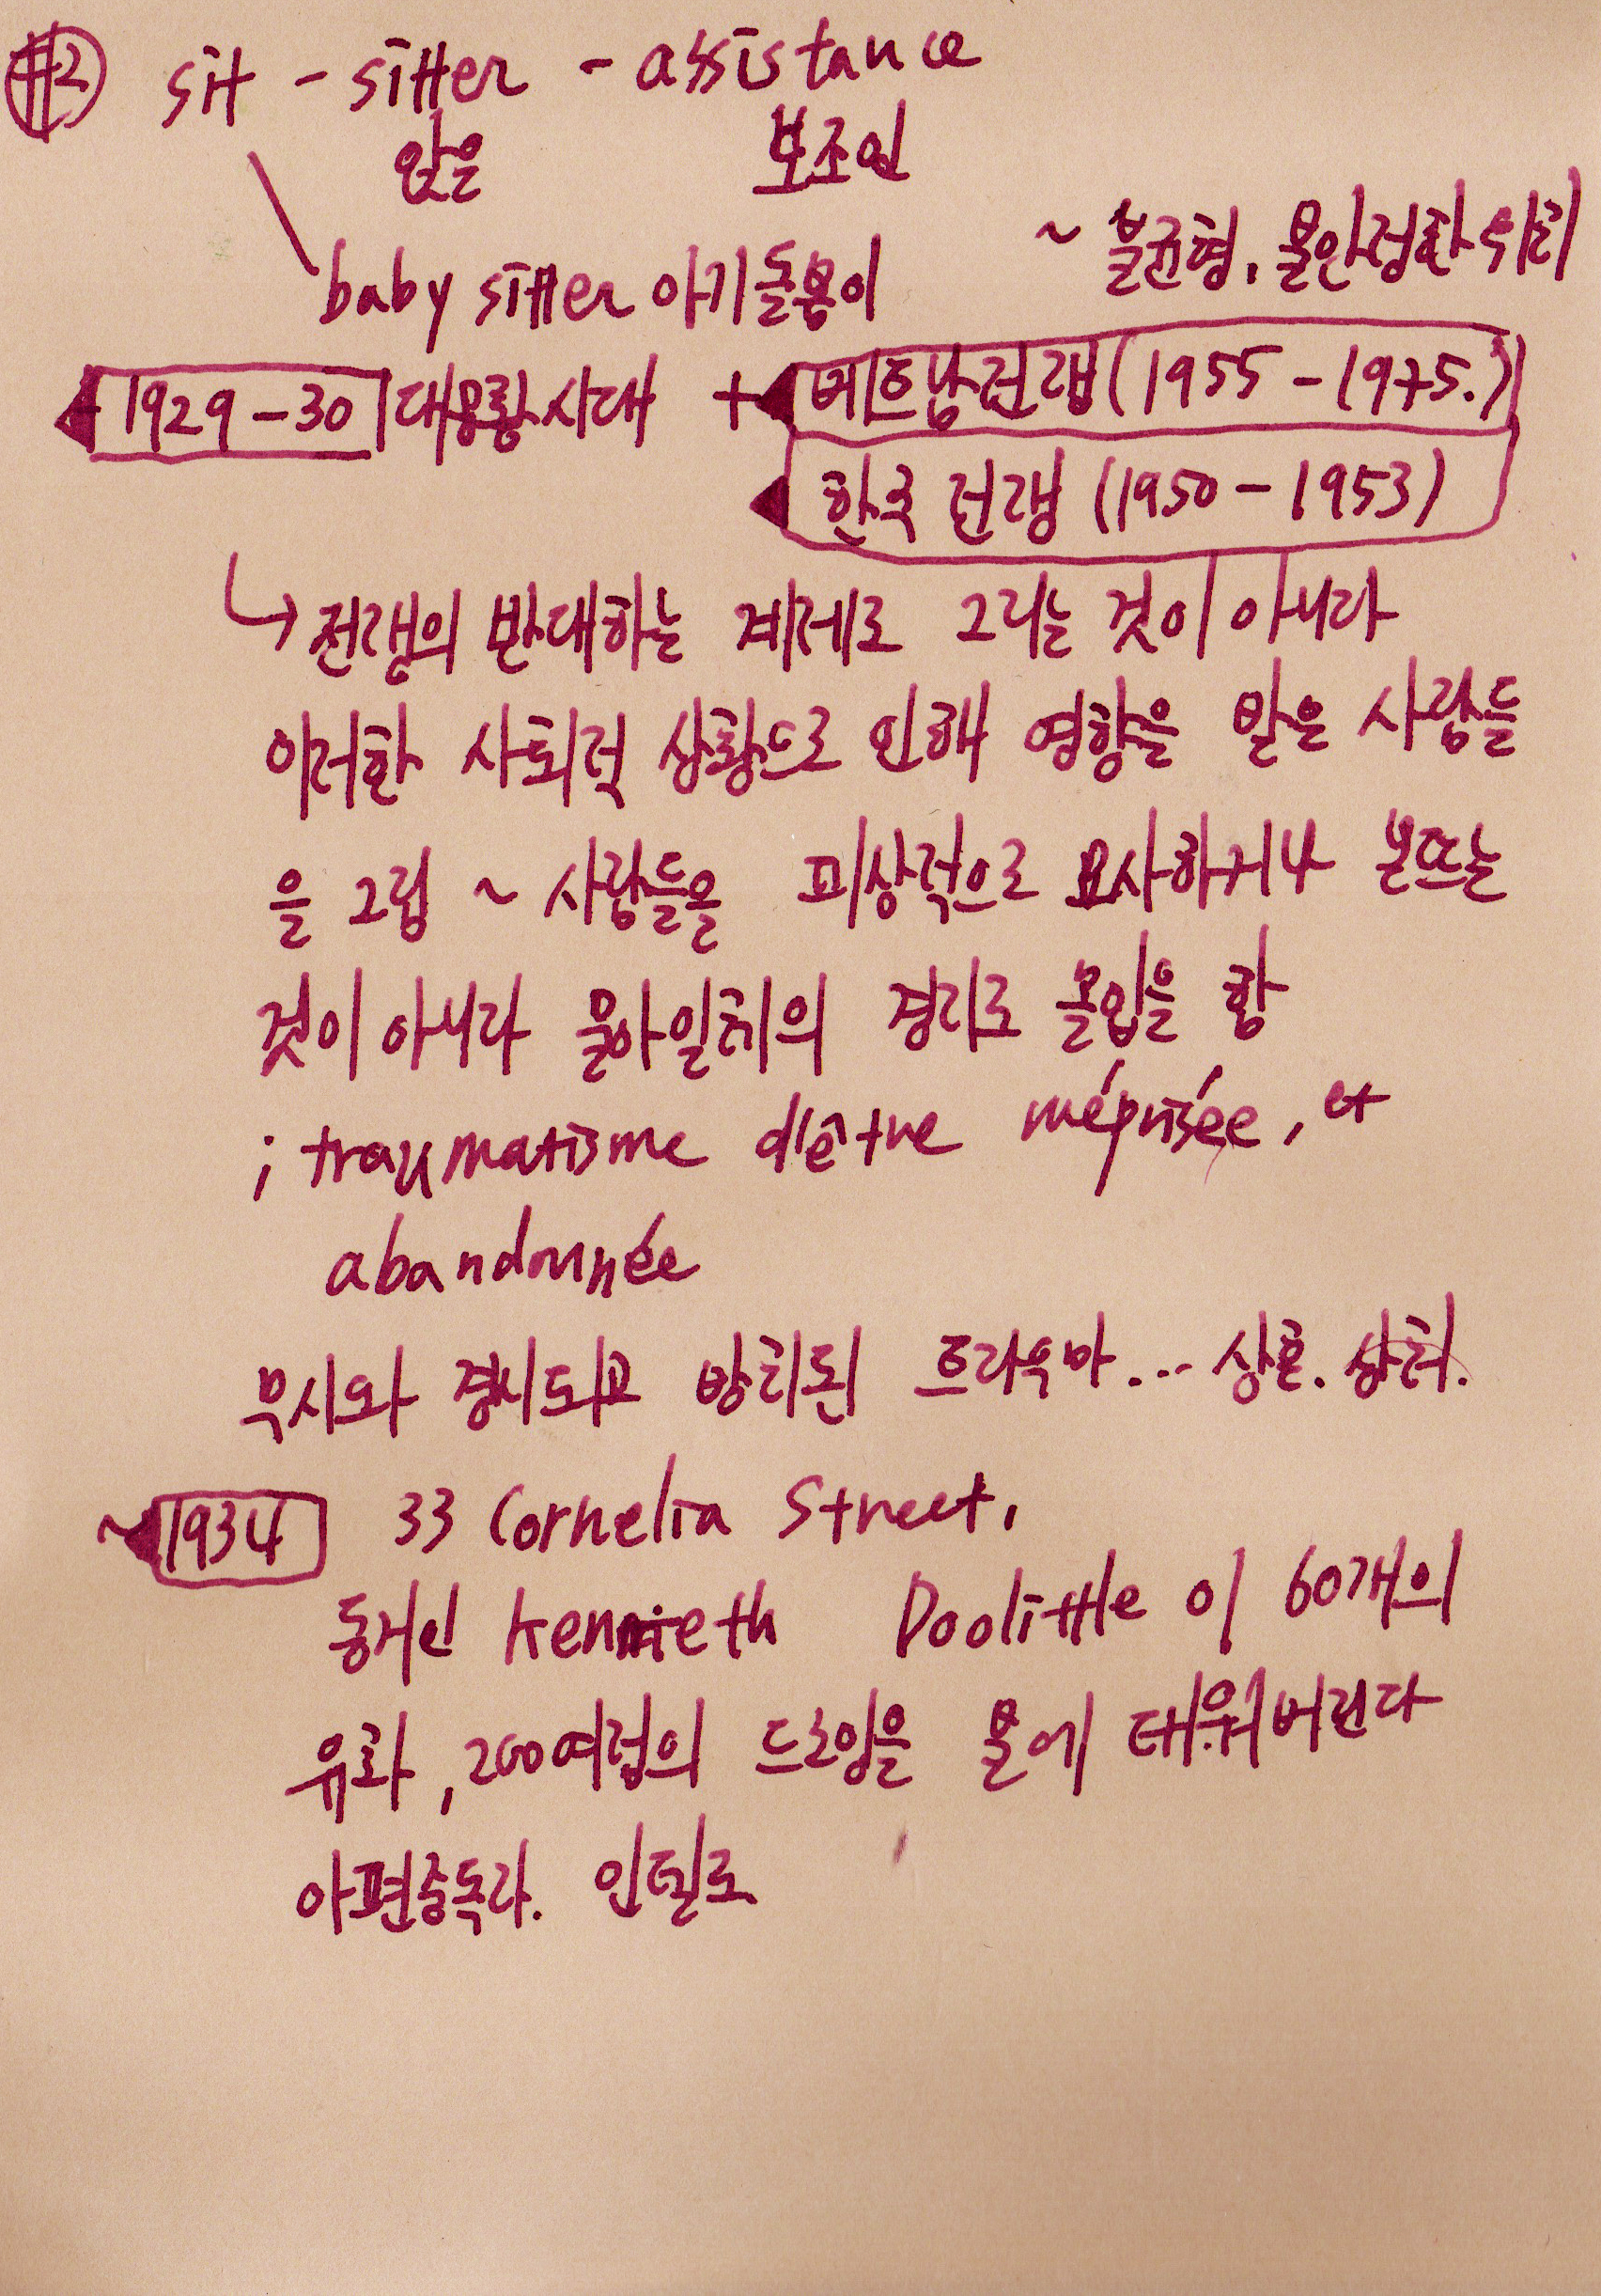 #2 sit - sitter - assistance
앉은 보조인
baby sitter 아기돌봄이
~ 불균형, 불안정한 위치
1929-30 대공황시대 + 베트남전쟁 (1955-1975.)
한국 전쟁 (1950-1953)
↳ 전쟁의 반대하는 계레로 그리는 것이 아니다
이러한 사회적 상황으로 인해 영향을 받은 사람들
을 그림 ~ 사람들을 피상적으로 묘사하거나 본뜨는
것이 아니라 물아일체의 경지로 몰입을 함
; traumatisme d'être méprisée, et
abandonnée
무시와 경시되고 방치된 트라우마... 상흔. 상처.
~ 1934 33 Cornelia Street,
동거인 Kenneth Doolittle 이 60개의
유화, 200여점의 드로잉을 불에 태워버린다
아편중독자. 인텔로